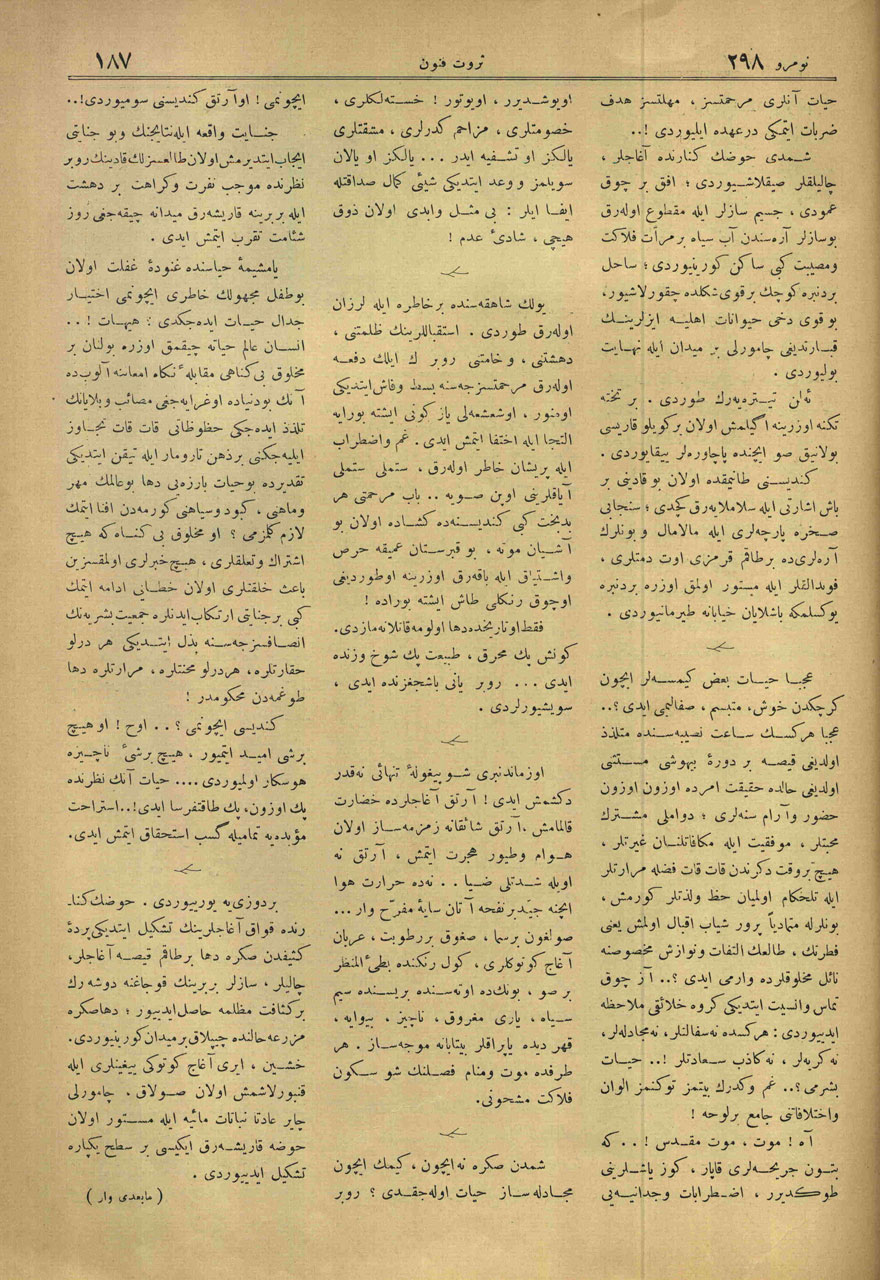 نومرو ٢٩٨
ثروت فنون
١٨٧
حيات آنلری مرحمتسز ، مهلتسز هدف
ضربات ايتمكی درعهده ايليوردی !..
شمدی حوضك كنارنده آغاجلر ،
چاليلقلر صيقلاشيوردی ؛ افق بر چوق
عمودی ، جسيم سازلر ايله مقطوع اوله‌رق
بوسازلر آره‌سندن آب سياه برمرأت فلاكت
ومصيبت كبی ساكن كورينيوردی ؛ ساحل
بردنبره كوچك برقوی شكلنده چقورلاشيور،
بو قوی دخی حيوانات اهليه ايزلرينك
قبارتديغی چامورلی بر ميدان ايله نهايت
بوليوردی .
ئه‌لن تيتره‌يه‌رك طوردی . بر تخته
تكنه اوزرينه اگيلمش اولان بركويلو قاريسی
بولانيق صو ايچنده پاچاوره‌لر ييقايوردی .
كنديسنی طانيمقده اولان بو قادينی بر
باش اشارتی ايله سلاملايه‌رق كچدی ؛ سنجابی
صخره پارچه‌لری ايله مالامال و بونلرك
آره‌لری‌ده برطاقم قرمزی اوت دمتلری ،
فوندالقلر ايله مستور اولمق اوزره بردنبره
يوكسلمكه باشلايان خيابانه طيرمانيوردی .
عجبا حيات بعض كيمسه‌لر ايچون
كرچكدن خوش، متبسم ، صفالیمی ايدی ؟..
عجبا هركسك ساعت نصيبه‌سنده متلذذ
اولديغی قيصه بر دورهٔ بيهوشی مستثنی
اولديغی حالده حقيقت امرده اوزون اوزون
حضور وآرام سنه‌لری ؛ دواملی مشترك
محبتلر ، موفقيت ايله مكافاتلنان غيرتلر ،
هيچ بروقت دكرندن قات قات فضله مرارتلر
ايله تلخكام اولميان حظ ولذتلر كورمش ،
بونلرله متمادياً پرور شياب اقبال اولمش يعنی
فطرتك ، طالعك التفات ونوازش مخصوصنه
نائل مخلوقلرده وارمی ايدی ؟.. آز چوق
تماس وانسيت ايتديكی گروه خلائقی ملاحظه
ايدييوردی : هركسده نه‌سفالتلر، نه‌مجادله‌لر،
نه كريه‌لر ، نه‌كاذب سعادتلر !.. حيات
بشرمی ؟.. غم وكدرك بيتمز توكنمز الوان
واختلافاتنی جامع برلوحه !
آه ! موت ، موت مقدس ! .. كه
بتون جريحه‌لری قاپار ، كوز ياشلرينی
طوكديرر ، اضطرابات وجدانيه‌يی
اويوشديرر ، اويوتور ! خسته‌لكلری ،
خصومتلری ، مزاحم كدرلری ، مشقتلری
يالكز او تشفيه ايدر ... يالكز او يالان
سويلمز و وعد ايتديكی شيئی كمال صداقتله
ايفا ايلر : بی مثل وابدی اولان ذوق
هيچی ، شادیٔ عدم !
يولك شاهقه‌سنده برخاطره ايله لرزان
اوله‌رق طوردی . استقباللرينك ظلمتنی ،
دهشتنی ، وخامتنی روبر ك ايلك دفعه
اوله‌رق مرحمتسزجه‌سنه بسط وفاش ايتديكی
اومنور ، اوشعشعه‌لی ياز كونی ايشته بورايه
التجا ايله اختفا ايتمش ايدی . غم واضطراب
ايله پريشان خاطر اوله‌رق ، ستملی ستملی
آياقلرينی اوپن صويه .. باب مرحمتی هر
بدبخت كبی كنديسنه‌ده كشاده اولان بو
آشيان موته ، بو قبرستان عميقه حرص
واشتياق ايله باقه‌رق اوزرينه اوطورديغی
اوچوق رنكلی طاش ايشته بوراده !
فقط اوتاريخده‌دها اولومه قائلانه‌مازدی.
كونش پك محرق ، طبيعت پك شوخ وزنده
ايدی ... روبر يانی باشجغزنده ايدی ،
سويشيورلردی .
اوزماندنبری شو پيغولهٔ تنهائی نه‌قدر
دكشمش ايدی ! آرتق آغاجلرده خضارت
قالمامش ، آرتق شائقانه زمزمه‌ساز اولان
هوام وطيور هجرت ايتمش ، آرتق نه
اويله شدتلی ضيا .. نه‌ده حرارت هوا
ايچنه جيد برنفحه آتان سايهٔ مفرّح وار ...
صولغون برسما ، صغوق بررطوبت ، عريان
آغاج كوتوكلری ، كول رنكنده بطیٔ المنظر
بر صو ، بونك‌ده اوته‌سنده بريسنده سيم
سياه ، ياری مغروق ، ناچيز ، بيوايه ،
قهر ديده ياپراقلر بيتابانه موجه‌ساز . هر
طرفده موت ومنام فصلنك شو سكون
فلاكت مشحونی.
شمدن صكره نه ايچون ، كيمك ايچون
مجادله‌ساز حيات اوله‌جقدی ؟ روبر
ايچونمی ! اوآرتق كنديسنی سوميوردی!..
جنايت واقعه ايله‌نتايجنك وبو جنايتی
ايجاب ايتديرمش اولان طالعسزلك قادينك روبر
نظرنده موجب نفرت وكراهت بر دهشت
ايله بربرينه قاريشه‌رق ميدانه چيقه‌جغی روز
شئامت تقرب ايتمش ايدی .
يامشيمهٔ حياسنده غنودهٔ غفلت اولان
بوطفل مجهولك خاطری ايچونمی اختيار
جدال حيات ايده‌جكدی ؟ هيهات !..
انسان عالم حياته چيقمق اوزره بولنان بر
مخلوق بی‌كناهی مقابلهٔ نكاه امعاسنه آلوب‌ده
آنك بودنياده اوغرايه‌جغی مصائب وبلايانك
تلذذ ايده‌جكی حظوظاتی قات قات تجاوز
ايليه‌جكنی برذهن تارومار ايله تيقن ايتديكی
تقديرده بوحيات بارزه‌يی دها بوعالمك مهر
وماهنی ، كبود وسياهنی كورمه‌دن افنا ايتمك
لازم كلزمی ؟ او مخلوق بی كناه كه هيچ
اشتراك وتعلقلری ، هيچ خبرلری اولمقسزين
باعث خلقتلری اولان خطايی ادامه ايتمك
كبی برجنايتی ارتكاب ايدنلره جمعيت بشريه‌نك
انصافسزجه‌سنه بذل ايتديكی هر درلو
حقارتلره، هردرلو محنتلره ، مرارتلره دها
طوغمه‌دن محكومدر !
كنديسی ايچونمی ؟.. اوح ! او هيچ
برشی اميد ايتميور ، هيچ برشیٔ ناچيزه
هوسكار اولميوردی .... حيات آنك نظرنده
پك اوزون، پك طاقتفرسا ايدی!..استراحت
مؤبده‌يه تماميله كسب استحقاق ايتمش ايدی.
بردوزی‌يه يورييوردی . حوضك كنا-
رنده قواق آغاجلرينك تشكيل ايتديكی پردهٔ
كثيفدن صكره دها برطاقم قيصه آغاجلر،
چاليلر ، سازلر بربرينك قوجاغنه دوشه رك
بركثافت مظلمه حاصل ايدييور ؛ دهاصكره
مزرعه‌حالنده چيپلاق برميدان كورينيوردی.
خشين ، ايری آغاج كوتوكی ييغينلری ايله
قنبورلاشمش اولان صولاق ، چامورلی
چاير عادتا نباتات مائيه ايله مستور اولان
حوضه قاريشه‌رق ايكيسی بر سطح يكپاره
تشكيل ايدييوردی .
( مابعدی وار )